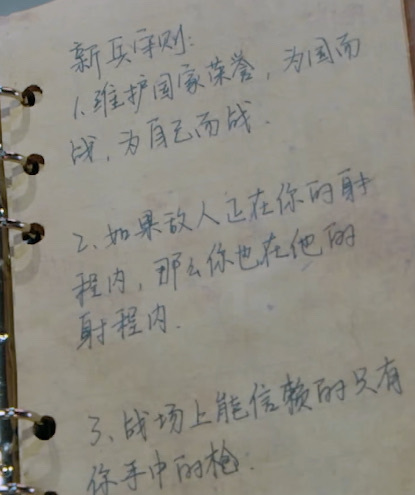 新兵守则:
1.维护国家荣誉,为国而
战,为自己而战.
2、如果敌人正在你的射
程内,那么你也在他的
射程内.
3、战场上能信赖的只有
你手中的枪.